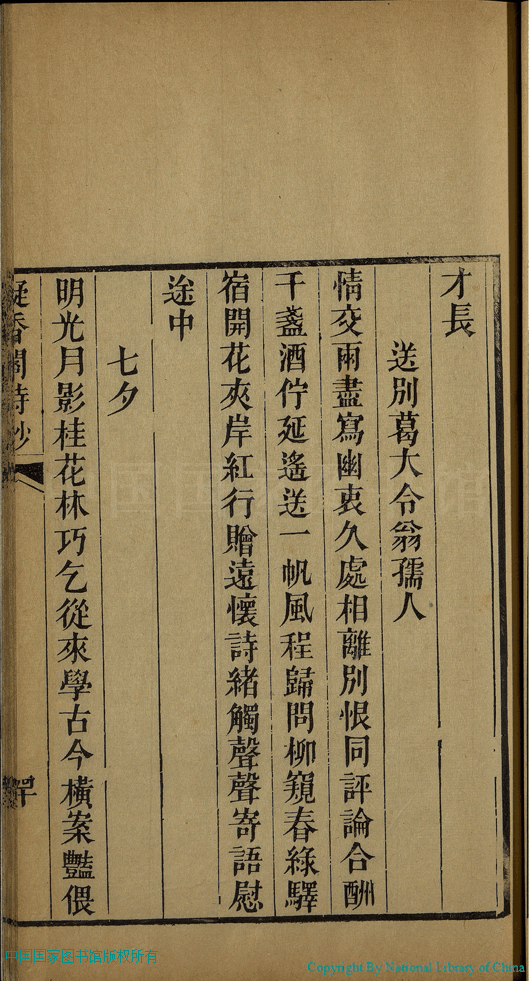 才長
送別葛大令翁孺人
情交兩盡寫幽衷久處相離別恨同評論合酬
千盞酒佇延遙送一帆風程歸問柳窺春綠驛
宿開花夾岸紅行贈遠懷詩緒觸聲聲寄語慰
途中
七夕
明光月影桂花林巧乞從來學古今橫案豔偎
凝香閣詩鈔
中国国家图书馆版权所有
Copyright By National Library of China